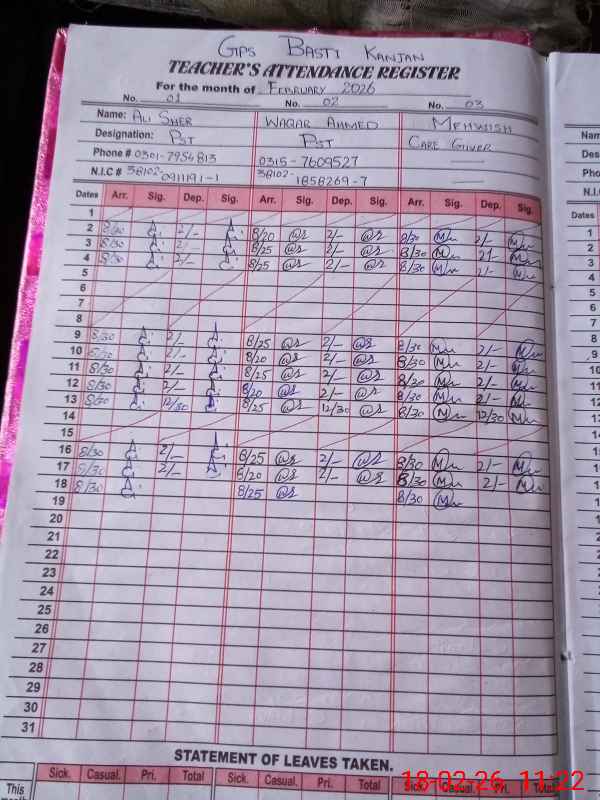 GPS BASTI KANJAN
TEACHER'S ATTENDANCE REGISTER
For the month of FEBRUARY 2026
No. 01 No. 02 No. 03
Name: ALI SHER WAQAR AHMED MEHWISH
Designation: PST PST CARE GIVER
Phone # 0301-7954813 0315-7609527
N.I.C # 38102-0911191-1 38102-1858269-7
Dates Arr. Sig. Dep. Sig. Arr. Sig. Dep. Sig. Arr. Sig. Dep. Sig.
1
2 8/30 2/- 8/20 2/- 8/30 2/-
3 8/30 2/- 8/25 2/- 8/30 2/-
4 8/30 2/- 8/25 2/- 8/30 2/-
5
6
7
8
9 8/30 2/- 8/25 2/- 8/30 2/-
10 8/30 2/- 8/20 2/- 8/30 2/-
11 8/30 2/- 8/25 2/- 8/30 2/-
12 8/30 2/- 8/20 2/- 8/30 2/-
13 8/30 12/30 8/25 12/30 8/30 12/30
14
15
16 8/30 2/- 8/25 2/- 8/30 2/-
17 8/30 2/- 8/20 2/- 8/30 2/-
18 8/30 8/25 8/30
19
20
21
22
23
24
25
26
27
28
29
30
31
STATEMENT OF LEAVES TAKEN.
This Sick. Casual. Pri. Total Sick. Casual. Pri. Total Sick.
18-02-26 11:22
Dates
1
2
3
4
5
6
7
8
9
10
11
12
13
14
15
16
17
18
19
20
21
22
23
24
25
26
27
28
29
30
31